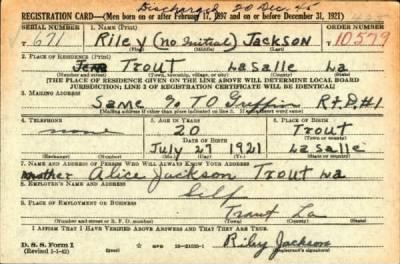 Discharged 20 Dec. 45
REGISTRATION CARD—(Men born on or after February 17, 1897 and on or before December 31, 1921)
SERIAL NUMBER 1. NAME (Print) ORDER NUMBER
T 671 Riley (no Initial) Jackson 10,579
(First) (Middle) (Last)
2. PLACE OF RESIDENCE (Print)
Trout LaSalle La
(Number and street) (Town, township, village, or city) (County) (State)
[THE PLACE OF RESIDENCE GIVEN ON THE LINE ABOVE WILL DETERMINE LOCAL BOARD
JURISDICTION; LINE 2 OF REGISTRATION CERTIFICATE WILL BE IDENTICAL]
3. MAILING ADDRESS
Same % TO Griffin R.F.D.#1
4. TELEPHONE 5. AGE IN YEARS 6. PLACE OF BIRTH
none 20 Trout
DATE OF BIRTH (Town or county)
July 27 1921 LaSalle
(Exchange) (Number) (Mo.) (Day) (Yr.) (State or country)
7. NAME AND ADDRESS OF PERSON WHO WILL ALWAYS KNOW YOUR ADDRESS
mother Alice Jackson Trout La
8. EMPLOYER'S NAME AND ADDRESS
Self
9. PLACE OF EMPLOYMENT OR BUSINESS
Trout La
(Number and street or R. F. D. number) (Town) (County) (State)
I AFFIRM THAT I HAVE VERIFIED ABOVE ANSWERS AND THAT THEY ARE TRUE.
D. S. S. Form 1
(Revised 1-1-42) (over) Riley Jackson
(Registrant's signature)